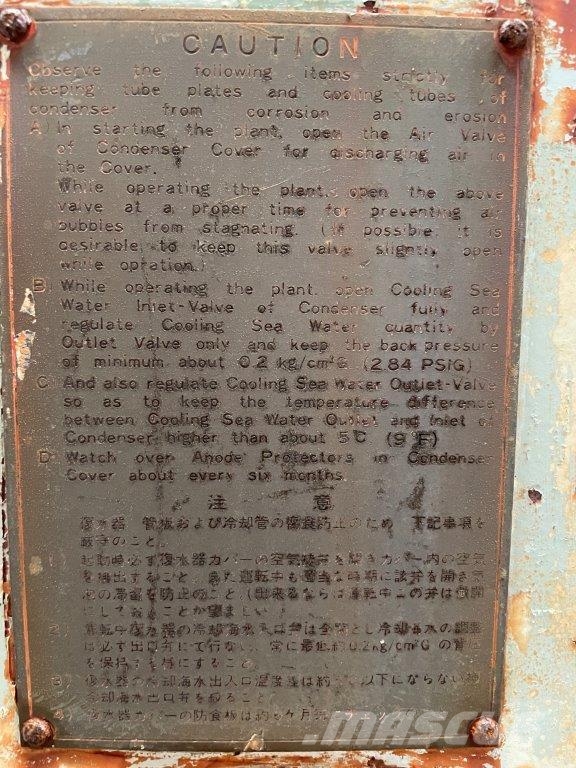 CAUTION
Observe the following items strictly for
keeping tube plates and cooling tubes of
condenser from corrosion and erosion
A) In starting the plant, open the Air Valve
of Condenser Cover for discharging air in
the Cover.
While operating the plant, open the above
valve at a proper time for preventing air
bubbles from stagnating. (If possible, it is
desirable to keep this valve slightly open
while opration.)
B) While operating the plant, open Cooling Sea
Water Inlet-Valve of Condenser fully and
regulate Cooling Sea Water quantity by
Outlet Valve only and keep the back pressure
of minimum about 0.2 kg/cm²G (2.84 PSIG)
C) And also regulate Cooling Sea Water Outlet-Valve
so as to keep the temperature difference
between Cooling Sea Water Outlet and Inlet of
Condenser higher than about 5℃ (9℉)
D) Watch over Anode Protectors in Condenser
Cover about every six months.
注 意
復水器 管板および冷却管の腐食防止のため 下記事項を
厳守のこと。
1) 起動時必ず復水器カバーの空気弁を開きカバー内の空気
を抽出すること また運転中も適当な時期に該弁を開き気
泡の滞留を防止のこと (出来るならば運転中この弁は微開
にしておくことが望ましい)
2) 運転中復水器の冷却海水入口弁は全開とし冷却海水の調整
は必ず出口弁にて行ない 常に最低約0.2kg/cm²G の背圧
を保持する様にすること
3) 復水器の冷却海水出入口温度差は約 以下にならない様
冷却海水出口弁を絞ること
4) 復水器カバーの防食板は約6ヶ月
MASCUS